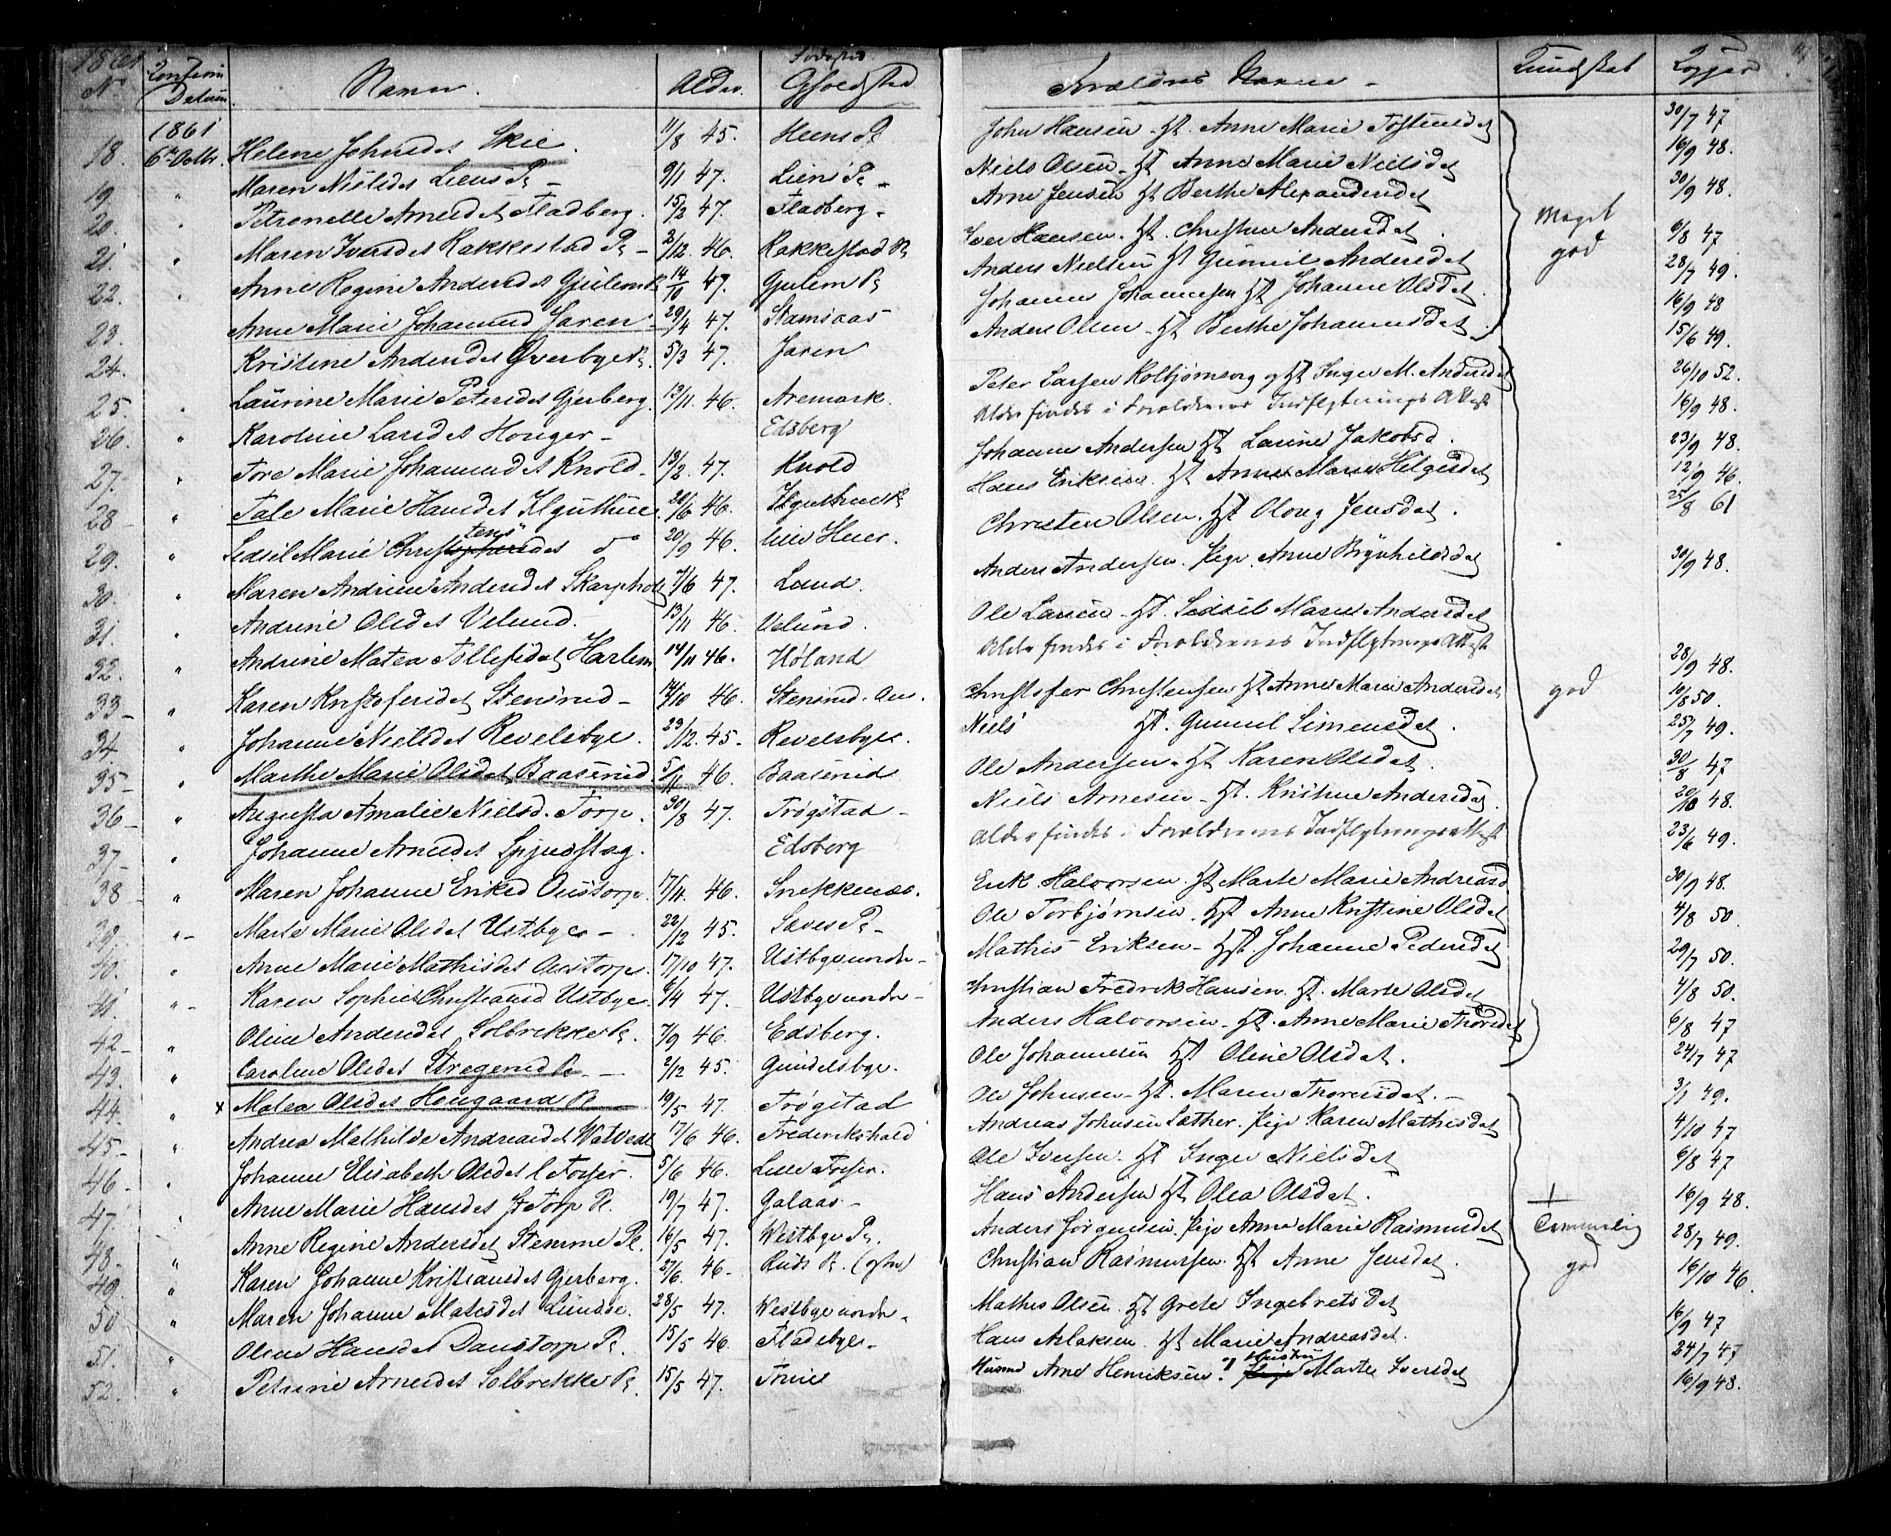 1861
No Datum Navn. Alder. Fødested Opholdsted Forældres Navne - Kundskab
1861
18. 6te Octbr. Helene Johnsdet Skie. 11/8 45. John Hansen - Hst. Anne Marie 30/7 47
19. " Maren Nielsdet Liens Pl - 9/1 47. Lien Pl - Niels Olsen - Hst Anne Marie Nielsdet 16/9 48.
20. " Petronelle Arnesdet Fladberg. 15/2 47. Fladberg - Arne Jensen Hst Berthe Alexandersdet 30/9 48. Meget god
21. " Maren Iversdet Rakkestad Pl - 2/12 46. Rakkestad Pl Iver Hansen. Hst. Christine Andersdet 6/8 47
22. " Anne Regine Andersdet Gjulem Pl 14/10 47. Gjulem Pl Anders Nielsen Hst Gunnil Andersdet 28/7 49.
23. Anne Marie Johannesd Jaren 29/4 47. Stamsaas Johannes Johannesen Hst Johanne Olsdet. 16/9 48
24. Kristine Andersdet Pl. 5/3 47. Jaren Anders Olsen - Hst Berthe Johannesdet. 15/6 49.
25. " Laurine Marie Petersdet Gjerberg. 13/11 46. Aremark. Peter Larsen Kolbjørnsvig og Hst Inger M. Andersdet 26/10 52.
26. " Karoline Larsdet Honger - Edsberg Alder findes i Forældrenes Indflytnings Attest 16/9 48.
27. " Tore Marie Johannesdet Knold - 13/2 47. Knold Johannes Andersen Hst Larine Jakobsd. 23/9 48.
28 - " Tale Marie Hansdet 20/6 46. Hans Eriksen. Hst Anne Marie Helgesdet 12/9 46.
29. " Sedsil Marie Christensdet do 20/9 46. lille Heier. Christen Olsen. Hst Oloug Jensdet. 25/8 61
30. " Maren Andrine Andersdet Skarpholt 7/6 47. Lund. Anders Andersen. Pige. Anne Brynhildsdet 30/9 48.
31. " Andrine Olsdet Velund. 13/11 46. Velund. Ole Larsen - Hst. Sedsil Marie Andersdet
32. " Andrine Matea Tollefsdet Harlem 14/11 46. Høland Alder findes i Forældrenes Indflytnings Attest 28/9 48.
33 - " Karen Kristofersdet Stensrud - 14/10 46. Stensrud. Christofer Christensen Hst Anne Marie Andersdet god 10/8 50.
34. " Johanne Nielsdet Revelsbye. 23/12. 45 - Revelsbye. Niels Hst. Gunnil Simensdet. 25/7 49.
35 - " Marthe Marie Olsdet Baaserud 5/11 46. Baaserud Ole Andersen - Hst Karen Olsdet. 30/8 47
36 - " Augusta Amalie Nielsd. Torp. 30/8 47. Trøgstad - Niels Arnesen - Hst. Kristine Andersdet. 20/10 48.
37 - " Johanne Arnesdet Edsberg Alder findes i Forældrenes Indflytningsattest 23/6 49.
38 - " Maren Johanne Eriksd Oustorp. 17/11 46. Snekkenæs. Erik Halvorsen. Hst Marte Marie Andreasd 30/9 48.
39. " - Marte Marie Olsdet Ustbye - 22/12 45. Pl - Ole Torbjørnsen. Hst. Anne Kristine Olsdet 4/8 50.
40. " Anne Marie Mathisdet Oustorp. 17/10 47. Ustbye nordre - Mathis Eriksen - Hst. Johanne Pedersdet 29/7 50.
41. " - Karen Sophie Christiansd Ustbye. 6/4 47. Ustbye nordre - Christian Fredrik Hansen. Hst. Marte Olsdet 4/8 50.
42 - " Oline Andersdet Solbrekke Pl. 7/9 46. Edsberg. Anders Halvorsen - Hst. Anne Marie Thorsdet 6/8 47
43. " Caroline Olsdet Pl. - 2/12 45. Gundelsbye. Ole Johannesen Hst Oline Olsdet. 24/7 47
44. " x Matea Olsdet Hougaard Pl 19/5 47. Trøgstad Ole Johnsen - Hst. Maren Thorersdet. - 3/1 49.
45 - " Andrea Mathilde Andreasdet Watvedt 17/6 46. Frederikshald Andreas Johnsen Sæther. Pige Karen Mathisdet 4/10 47
46 - " Johanne Elisabeth Olsdet l Tosser. 5/6 46. Lille Tosser. Ole Iversen. Hst Inger Nielsdet 6/8 47
47. " Anne Marie Hansdet Torp Pl. 19/7 47. Galaas - Hans Andersen Hst Olea Olsdet. 16/9 48.
48. " Anne Regine Andersdet Stemme Pl. 16/5 47. Westbye Pl. Anders Jørgensen. Pige Anne Marie Rasmusdet Temmelig god 28/7 49.
49. " Karen Johanne Kristiansdet Gjerberg. 27/6. 46 - Ruds Pl. Christian Rasmussen. Hst Anne Jensdet. 16/10 46.
50 " Maren Johanne Matisdet Lundse. 28/5 47. Westbye nordre - Mathis Olsen. Hst Grete Ingebretsdet 16/9 47
51. " Oline Hansdet Danstorp Pl. 15/5 46. Fladebye - Hans Aslaksen. Hst Marie Andreasdet. 24/7 47
52. " Petrine Arnesdet Solbrekke Pl 15/5 47. Husmd Arne Henriksen. og Hustru Marte Iversdet 16/9 48.